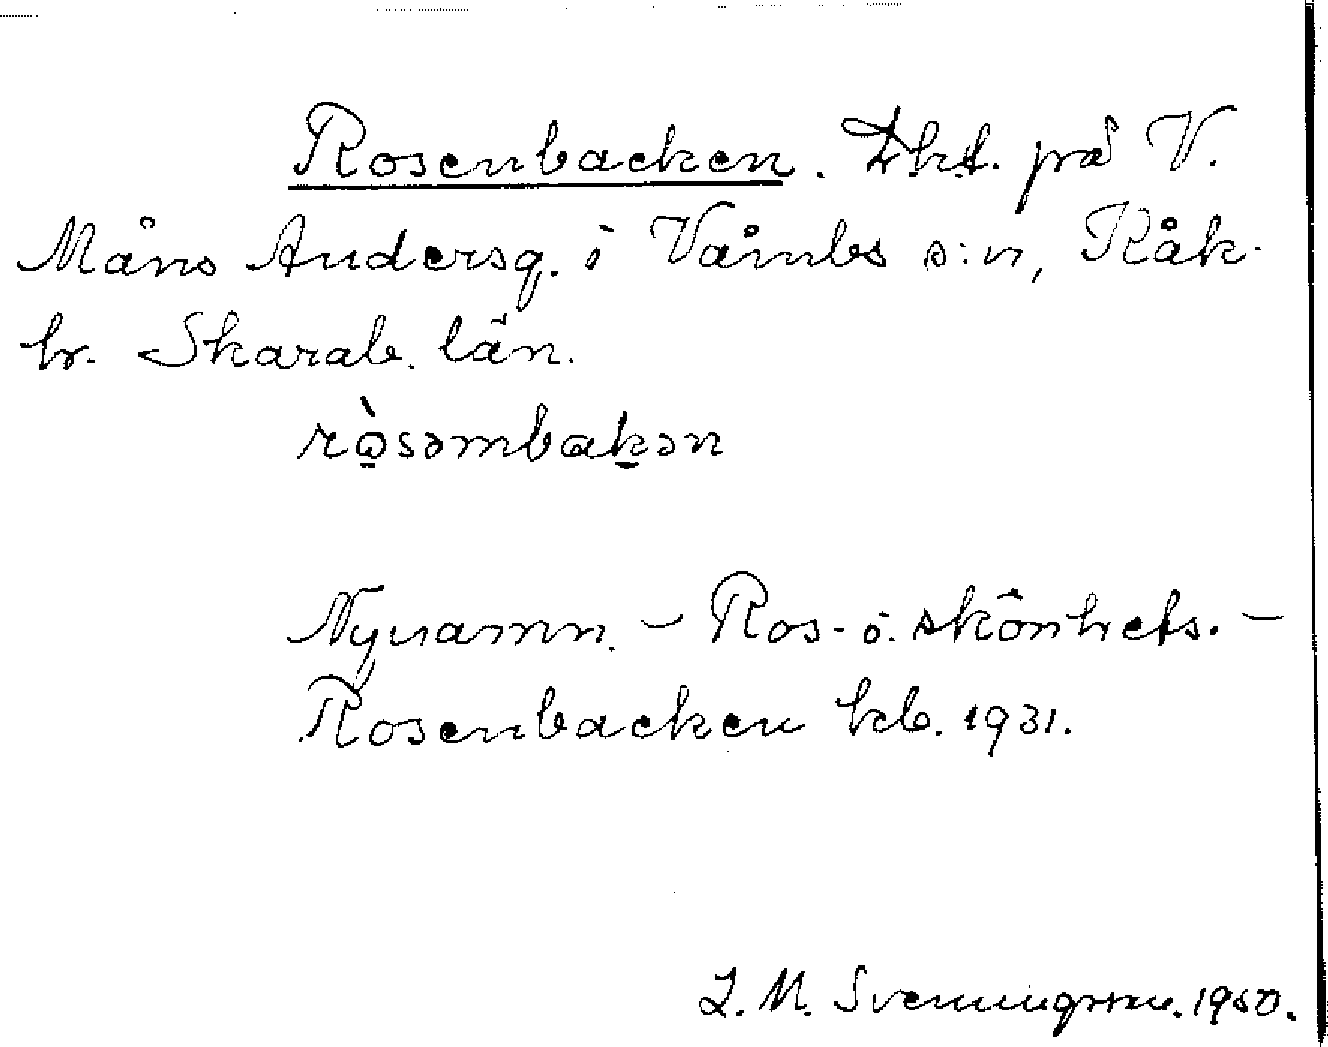 Rosenbacken. Lht. på V.
Måns Andersg. i Våmbs s:n, Kåk-
hr. Skarab. län.
rò̱səmbaḵən
Nynamn. – Ros- o. skönhets. –
Rosenbacken kb. 1931.
L. M. Svenningsson. 1950.